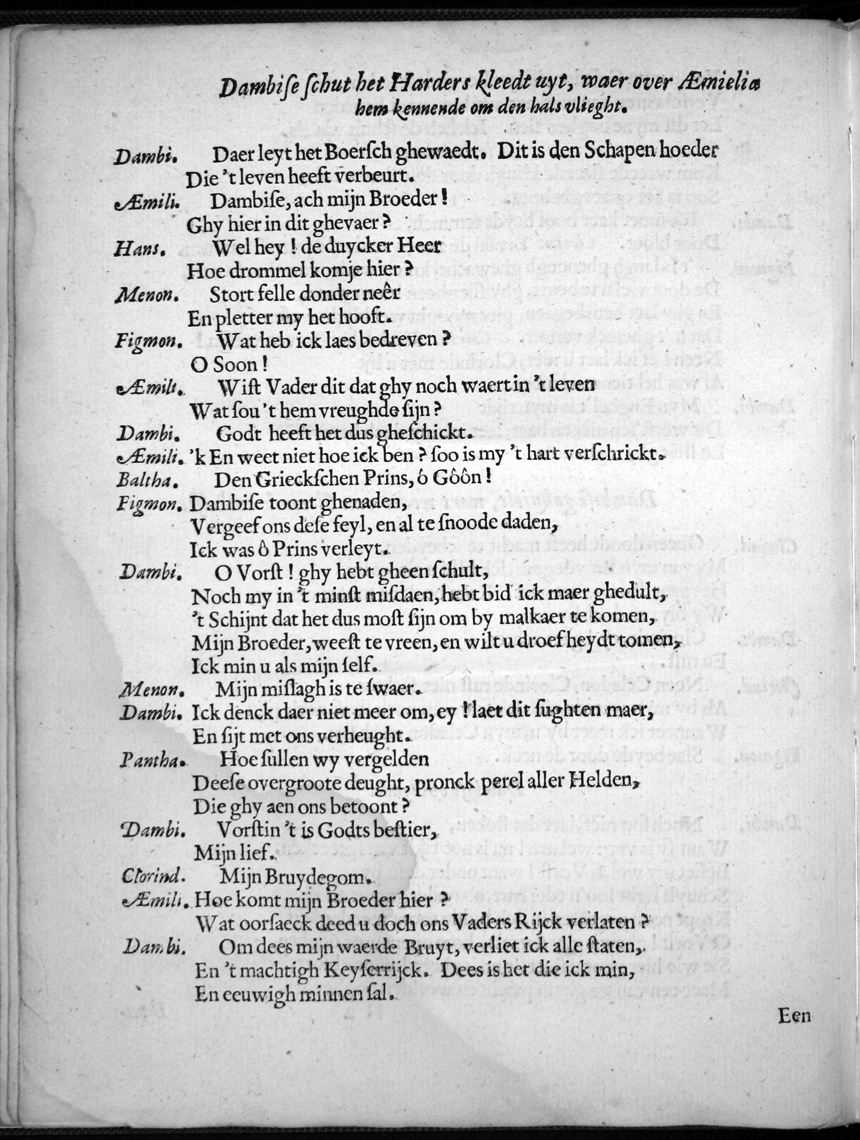 Dambiſe ſchut het Harders kleedt uyt, waer over Æmielia
hem kennende om den hals vlieght.
Dambi. Daer leyt het Boerſch ghewaedt. Dit is den Schapen hoeder
Die 't leven heeft verbeurt.
Æmili. Dambiſe, ach mijn Broeder!
Ghy hier in dit ghevaer?
Hans. Wel hey! de duycker Heer
Hoe drommel komje hier?
Menon. Stort felle donder neêr
En pletter my het hooft.
Figmon. Wat heb ick laes bedreven?
O Soon!
Æmili. Wiſt Vader dit dat ghy noch waert in 't leven
Wat ſou 't hem vreughde ſijn?
Dambi. Godt heeft het dus gheſchickt.
Æmili. 'k En weet niet hoe ick ben? ſoo is my 't hart verſchrickt.
Baltha. Den Grieckſchen Prins, ô Gôôn!
Figmon. Dambiſe toont ghenaden,
Vergeef ons deſe feyl, en al te ſnoode daden,
Ick was ô Prins verleyt.
Dambi. O Vorſt! ghy hebt gheen ſchult,
Noch my in 't minſt miſdaen, hebt bid ick maer ghedult,
't Schijnt dat het dus moſt ſijn om by malkaer te komen,
Mijn Broeder, weeſt te vreen, en wilt u droefheydt tomen,
Ick min u als mijn ſelf.
Menon. Mijn miſlagh is te ſwaer.
Dambi. Ick denck daer niet meer om, ey! laet dit ſughten maer,
En ſijt met ons verheught.
Pantha. Hoe ſullen wy vergelden
Deeſe overgroote deught, pronck perel aller Helden,
Die ghy aen ons betoont?
Dambi. Vorſtin 't is Godts beſtier,
Mijn lief.
Clorind. Mijn Bruydegom.
Æmili. Hoe komt mijn Broeder hier?
Wat oorſaeck deed u doch ons Vaders Rijck verlaten?
Dambi. Om dees mijn waerde Bruyt, verliet ick alle ſtaten,
En 't machtigh Keyſerrijck. Dees is het die ick min,
En eeuwigh minnen ſal.
Een